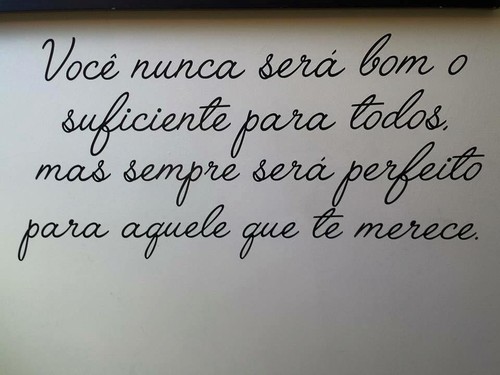 Você nunca será bom o
suficiente para todos,
mas sempre será perfeito
para aquele que te merece.